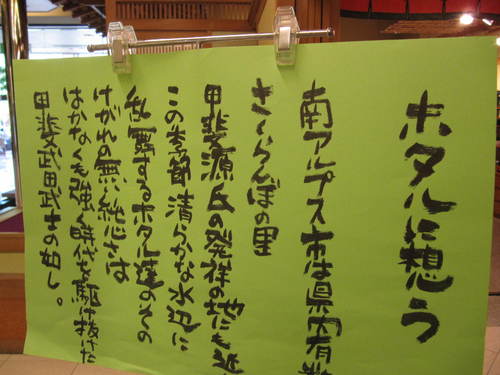 ホタルに想う
南アルプス市は県内有数
さくらんぼの里
甲斐源氏の発祥の地にも近
この季節清らかな水辺に
乱舞するホタル達のその
けがれの無い純心さは
はかなくも強く時代を駆け抜けた
甲斐武田武士の如し。